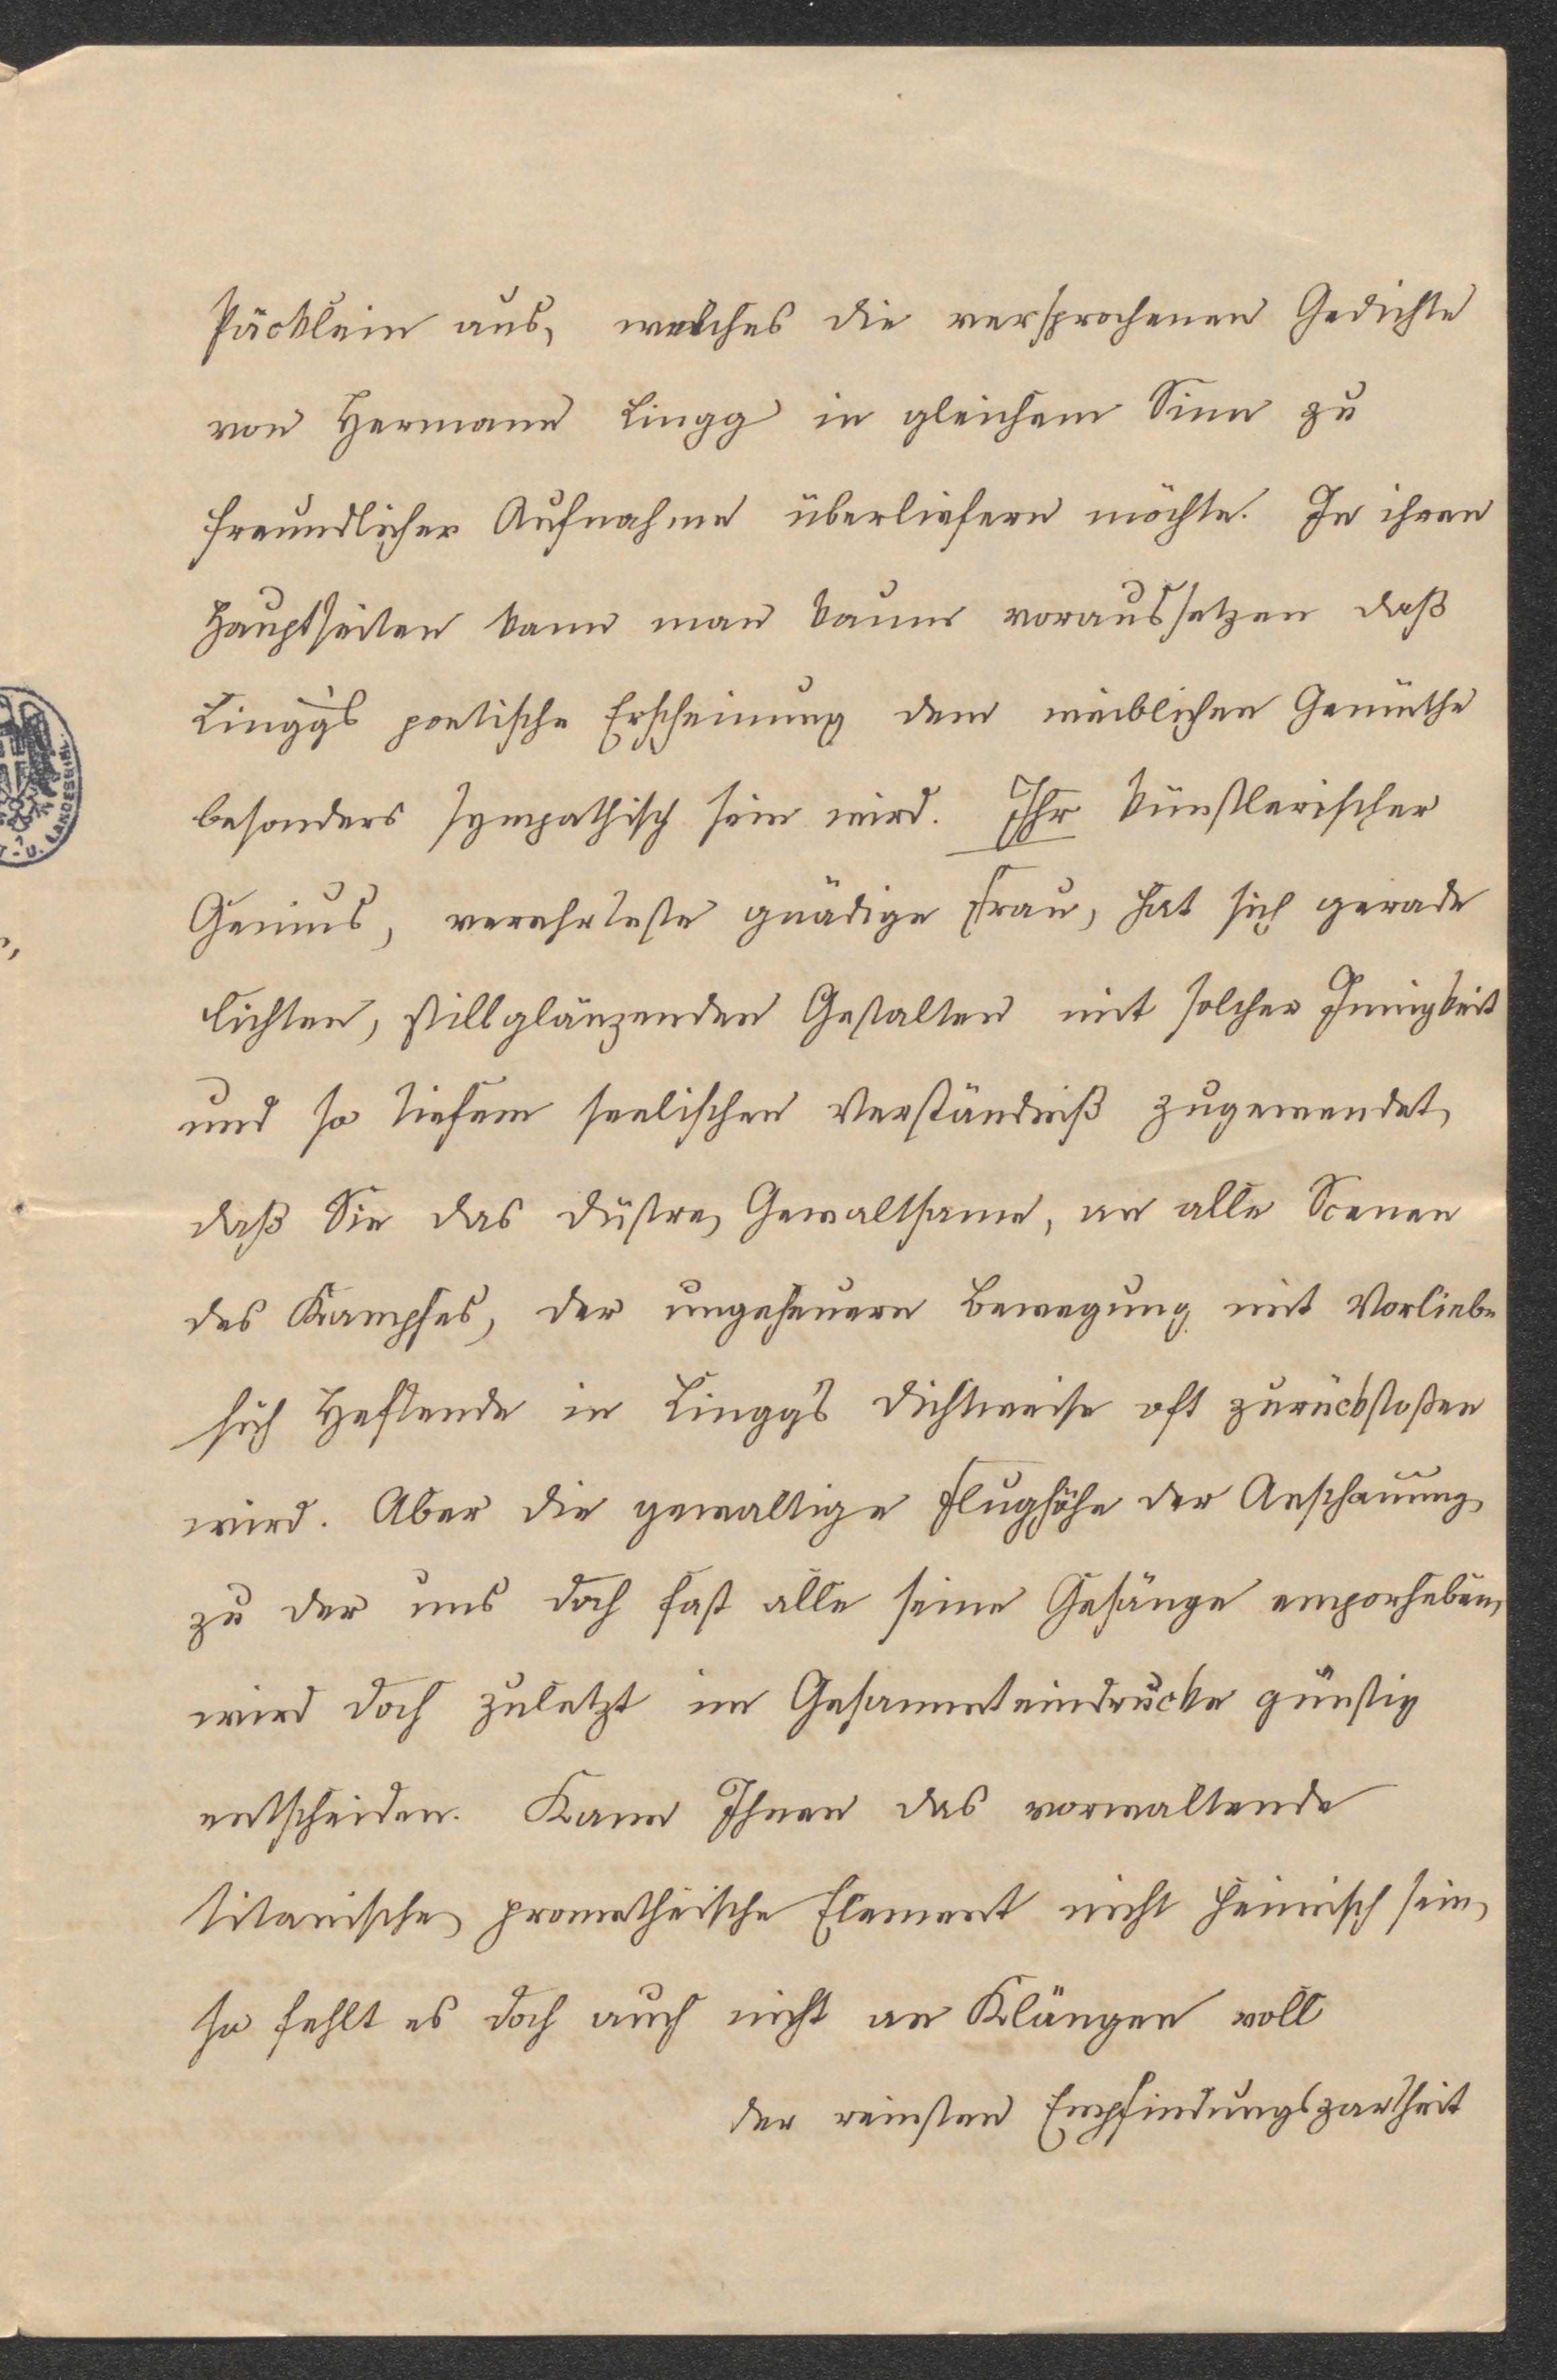 Päcklein aus, welches die versprochenen Gedichte
von Hermann Lingg in gleichem Sinn zu
freundlicher Aufnahme überliefern möchte. In ihren
Hauptseiten kann man kaum voraussetzen daß
Lingg's poetische Erscheinung dem weiblichen Gemüthe
besonders sympathisch sein wird. Ihr künstlerischer
Genius, verehrteste gnädige Frau, hat sich gerade
lichten, stillglänzenden Gestalten mit solcher Innigkeit
und so tiefem seelischen Verständniß zugewendet,
daß Sie das düstre, Gewaltsame, an alle Scenen
des Kampfes, der ungeheuern Bewegung mit Vorliebe
sich Heftende in Lingg's Dichtweise oft zurückstoßen
wird. Aber die gewaltige Flughöhe der Anschauung,
zu der uns doch fast alle seine Gesänge emporheben,
wird doch zuletzt im Gesammteindrucke günstig
entscheiden. Kann Ihnen das vorwaltende
titanische, prometheische Element nicht heimisch sein,
so fehlt es doch auch nicht an Klängen voll
der reinsten Empfindungszartheit
U. LANDESBIBL.